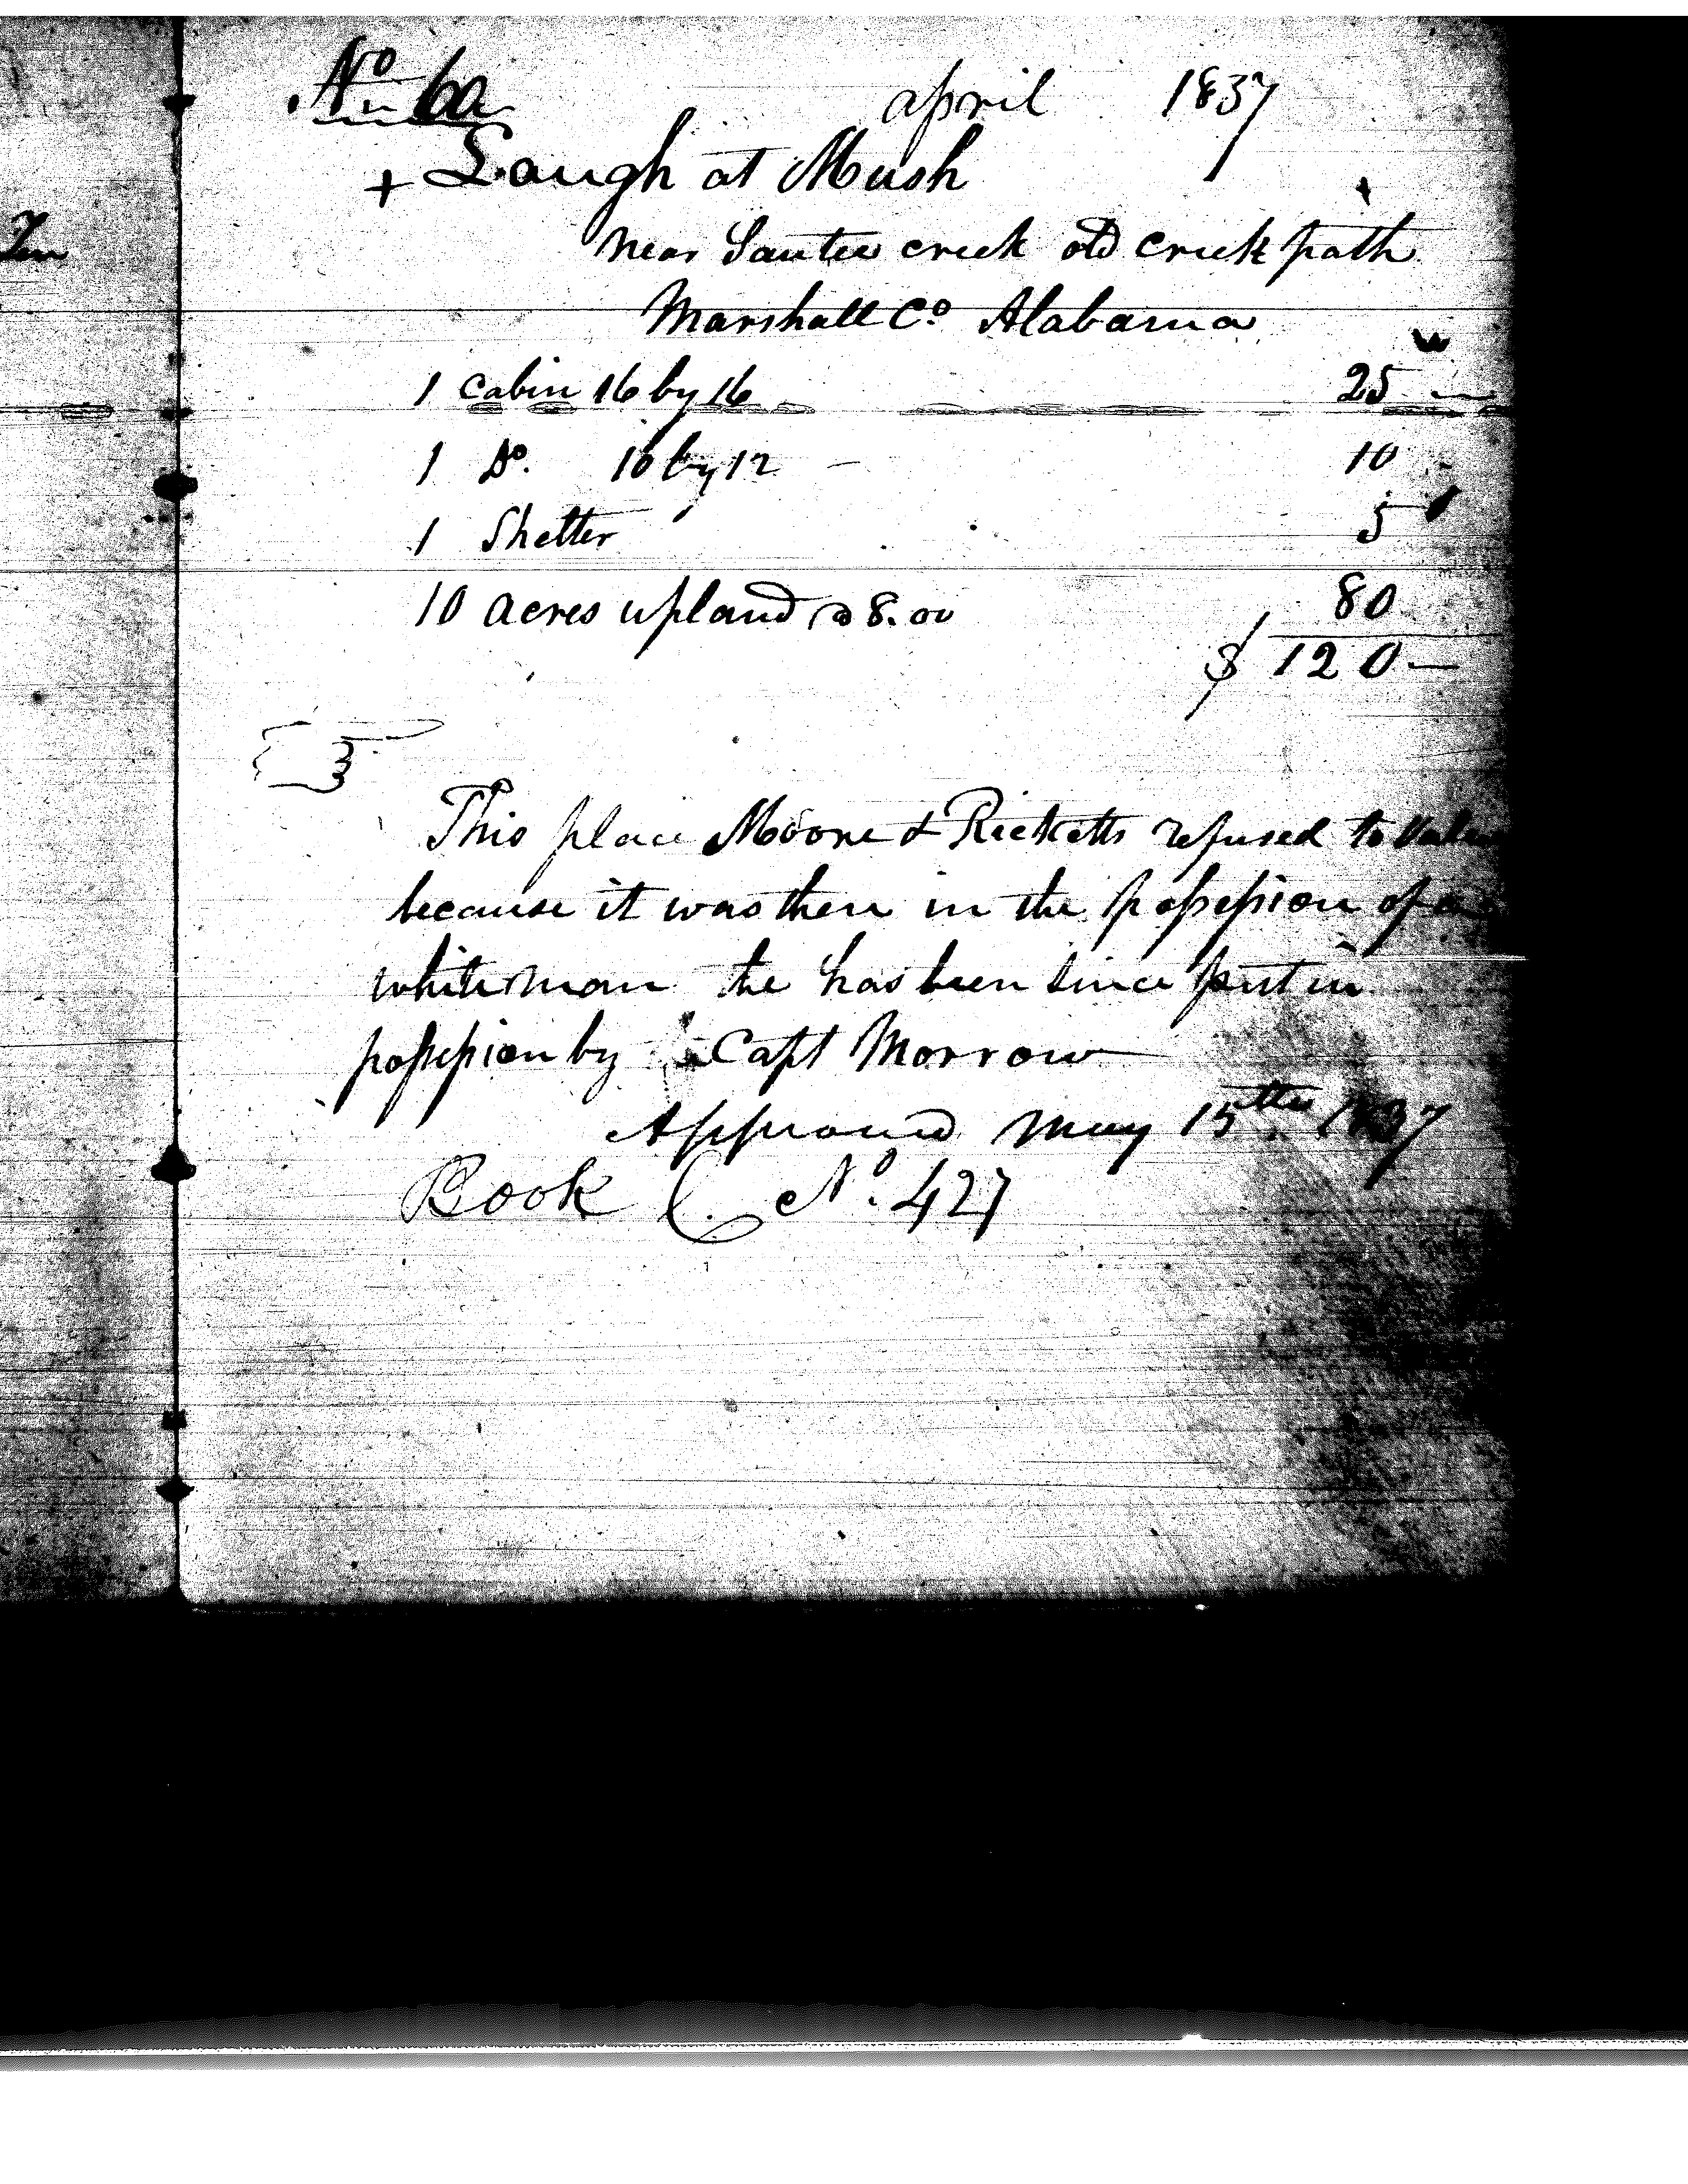 No 60
april 1837
+ Laugh at Mush
Near Santee creek old Creek path
Marshall Co Alabama
1 Cabin 16 by 16 25
1 Do. 10 by 12 10
1 Shelter 5
10 acres upland @ 8.00 80
$ 120
This place Moore & Ricketts refused to value
because it was then in the possession of a
white man he has been since put in
possession by Capt Morrow
Approved May 15th 1837
Book C. No. 427